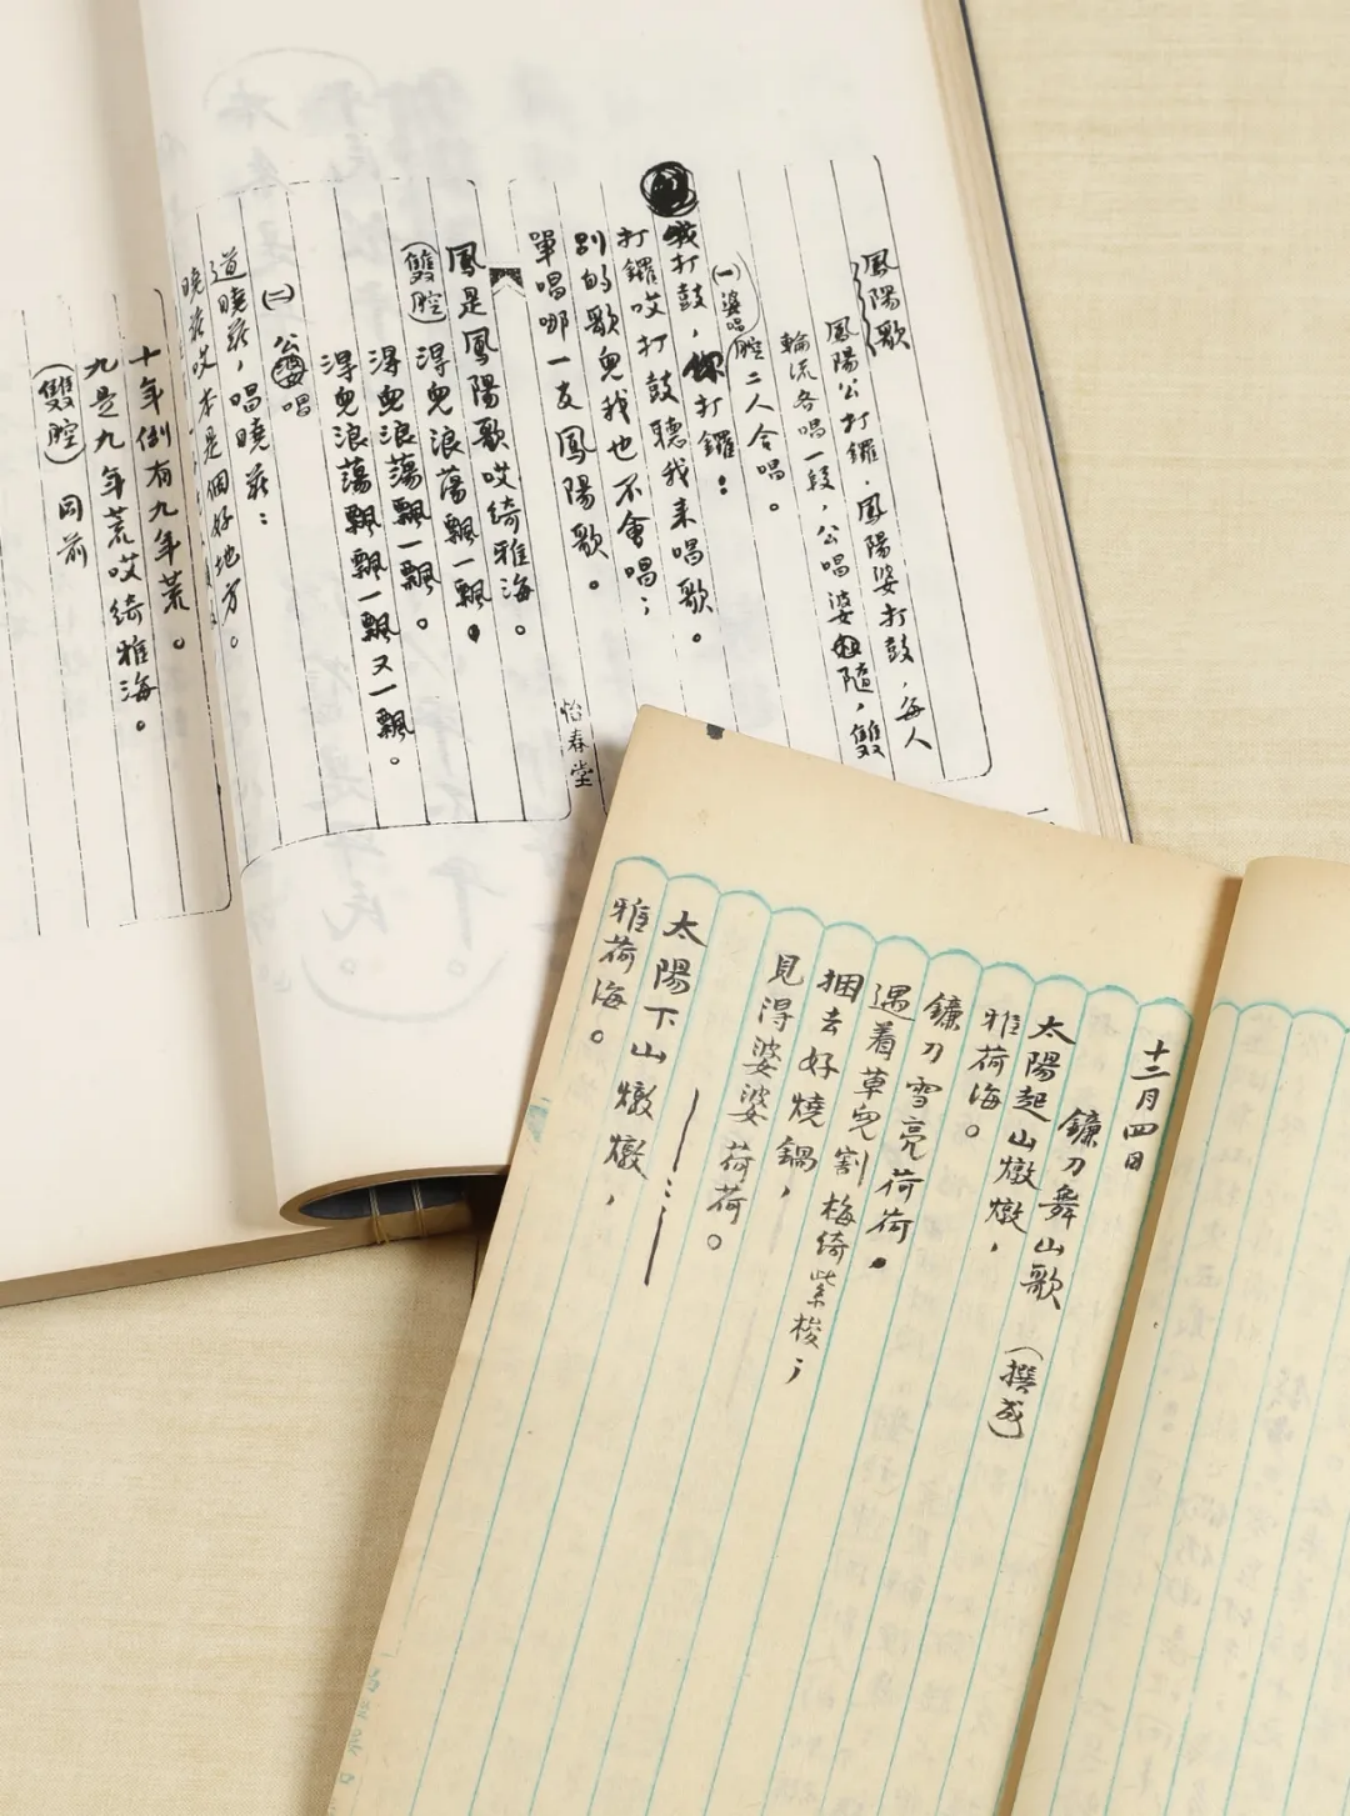 鳳陽歌
鳳陽公打鑼.鳳陽婆打鼓,每人
輪流各唱一段,公唱婆隨,雙
腔二人合唱。
(一)婆唱
我打鼓,你打鑼:
打鑼哎打鼓聽我來唱歌。
別的歌兒我也不會唱;
單唱哪一支鳳陽歌。
鳳是鳳陽歌哎綺雅海。
(雙腔)得兒浪蕩飄一飄。
得兒浪蕩飄一飄。
得兒浪蕩飄飄一飄又一飄。
(二)公唱
道曉莊,唱曉莊:
曉莊哎本是個好地方。
十年倒有九年荒。
九是九年荒哎綺雅海。
(雙腔)同前
怡春堂
十二月四日
鐮刀舞山歌(撰成)
太陽起山燉燉,
雅荷海。
鐮刀雪亮荷荷。
遇着草兒割梅綺紫梭;
捆去好燒鍋,
見得婆婆荷荷。
太陽下山燉燉,
雅荷海。